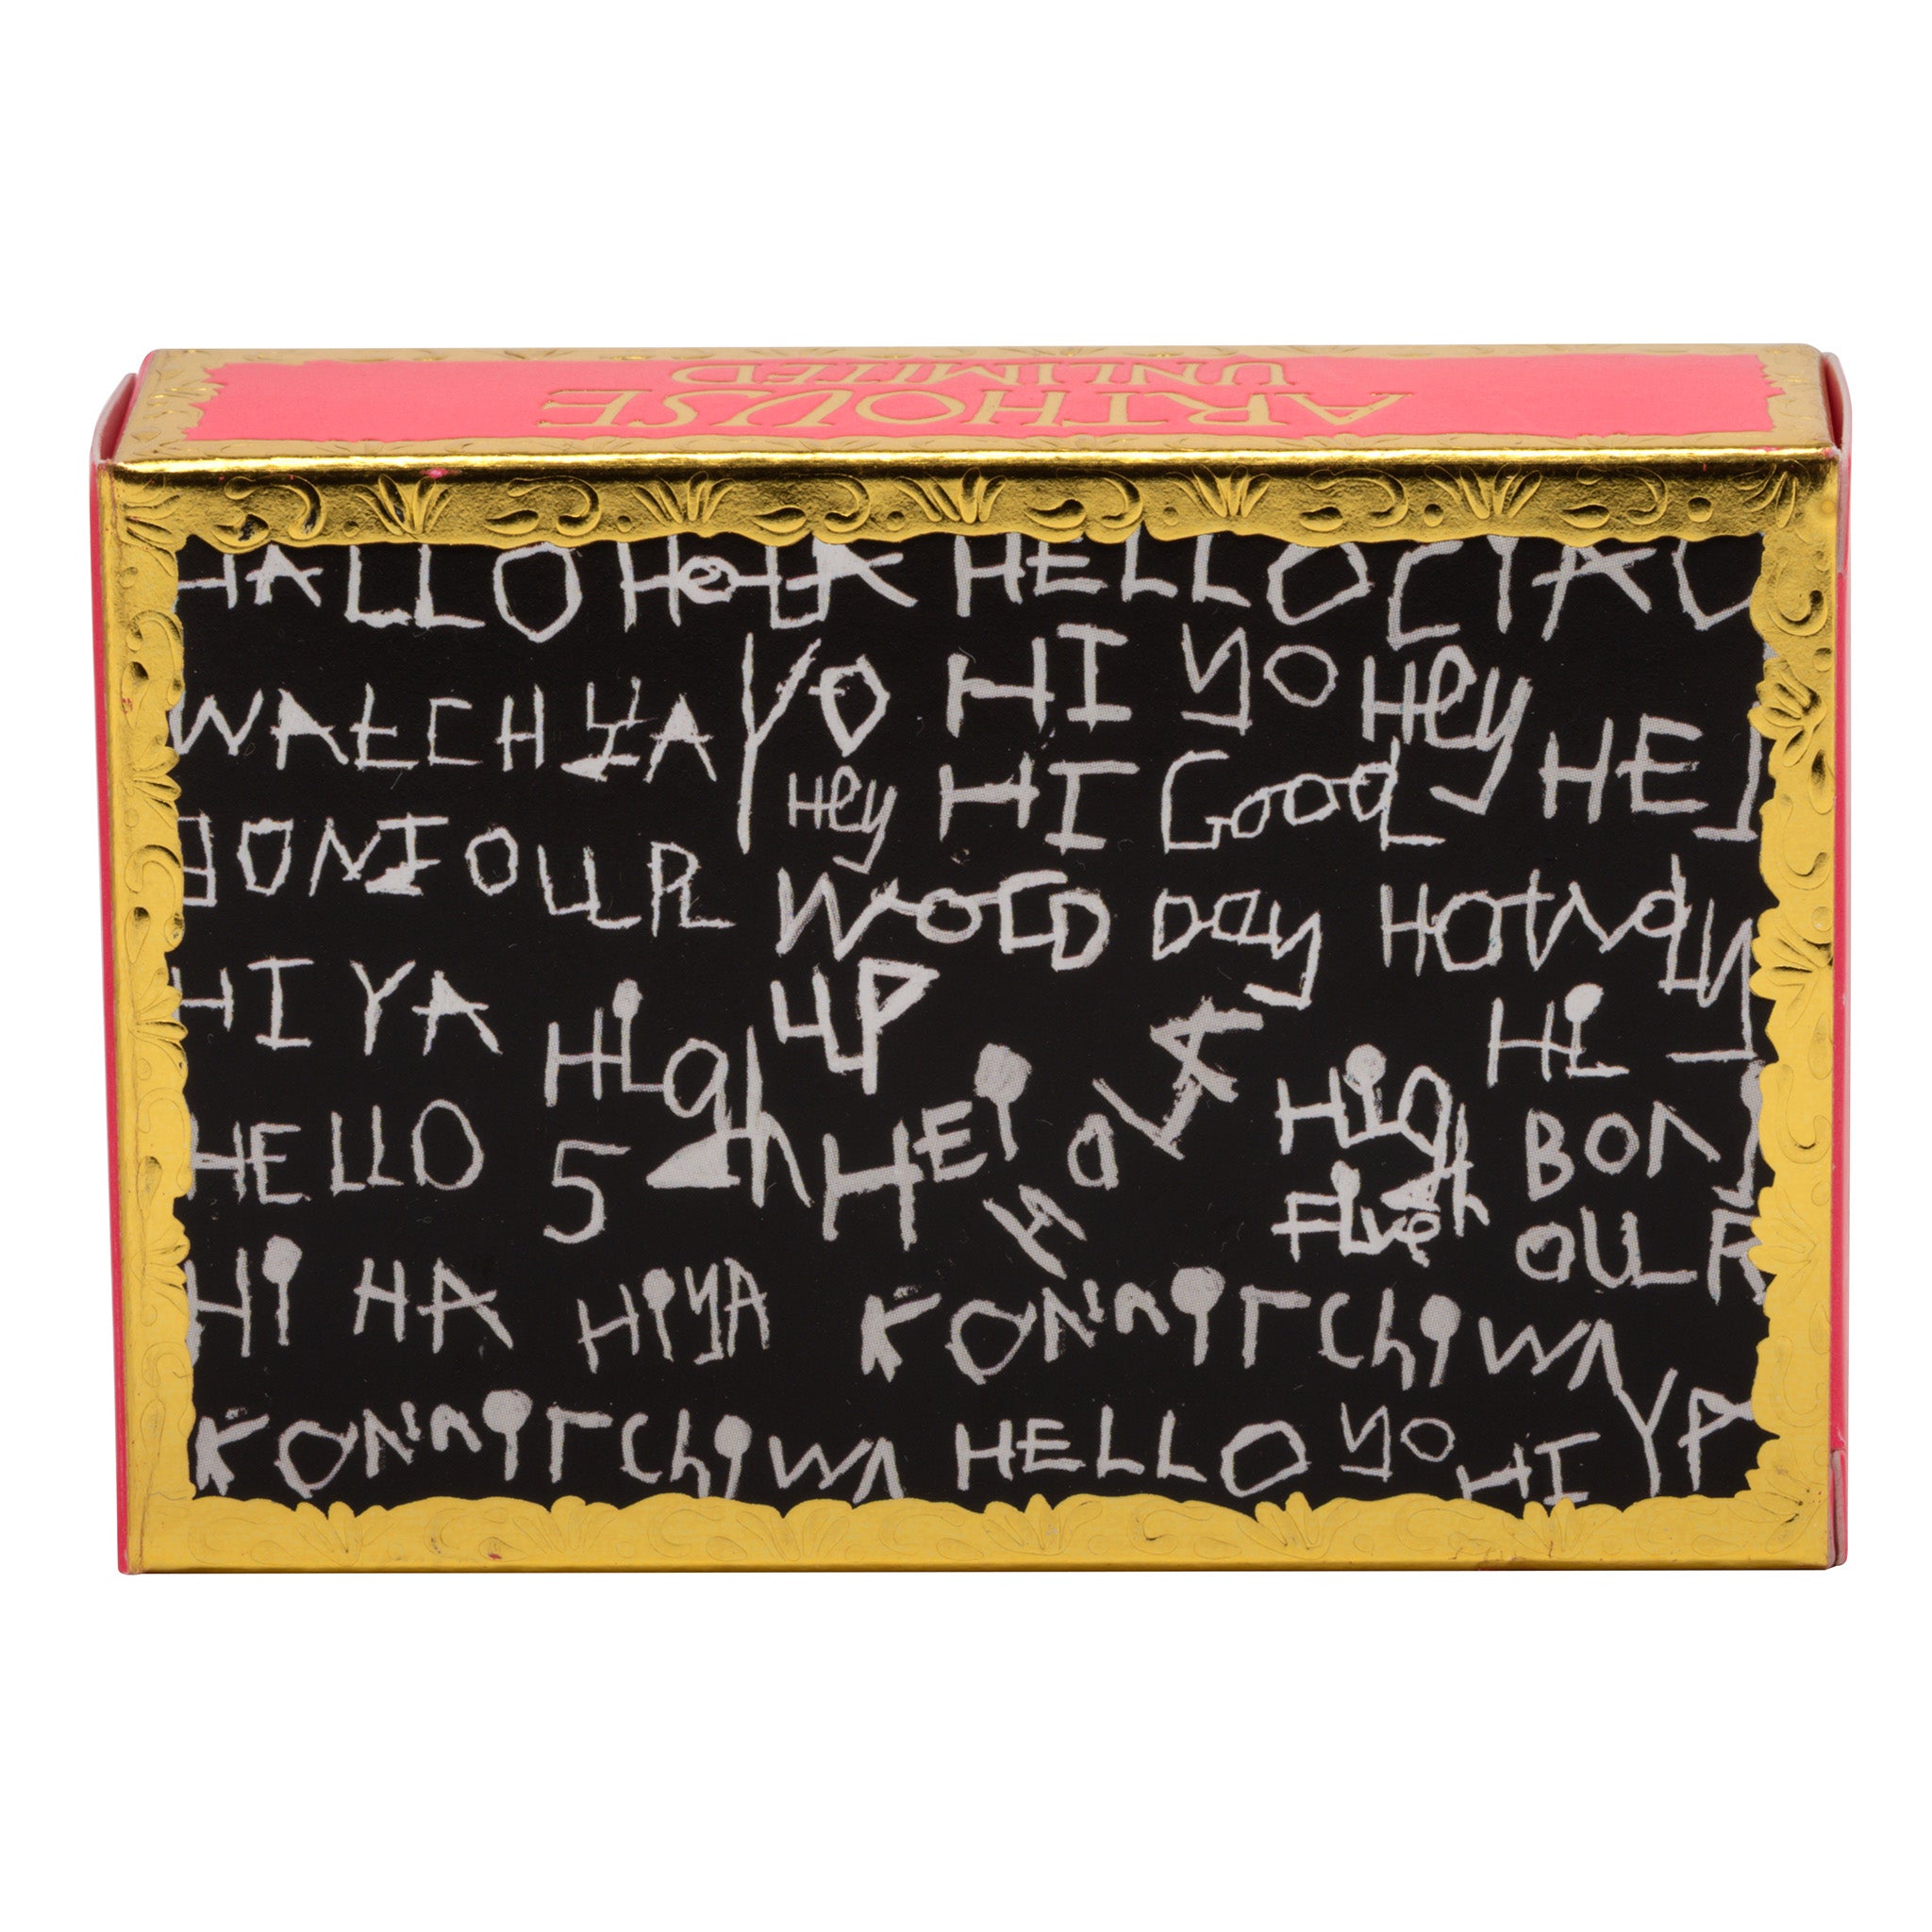 ARTHOUSE
UNLIMITED
HALLO HOLA HELLO CIAO
WATCHYA YO HI YO Hey HEJ
Hey HI Good
BONJOUR WORD Day HOWdy
HI YA High UP Hi
HELLO 5 HEi HOLA High BONJ
Five OUR
Hi HA HiYA KONNiTChiWA
KONNiTChiWA HELLO YO HI YA